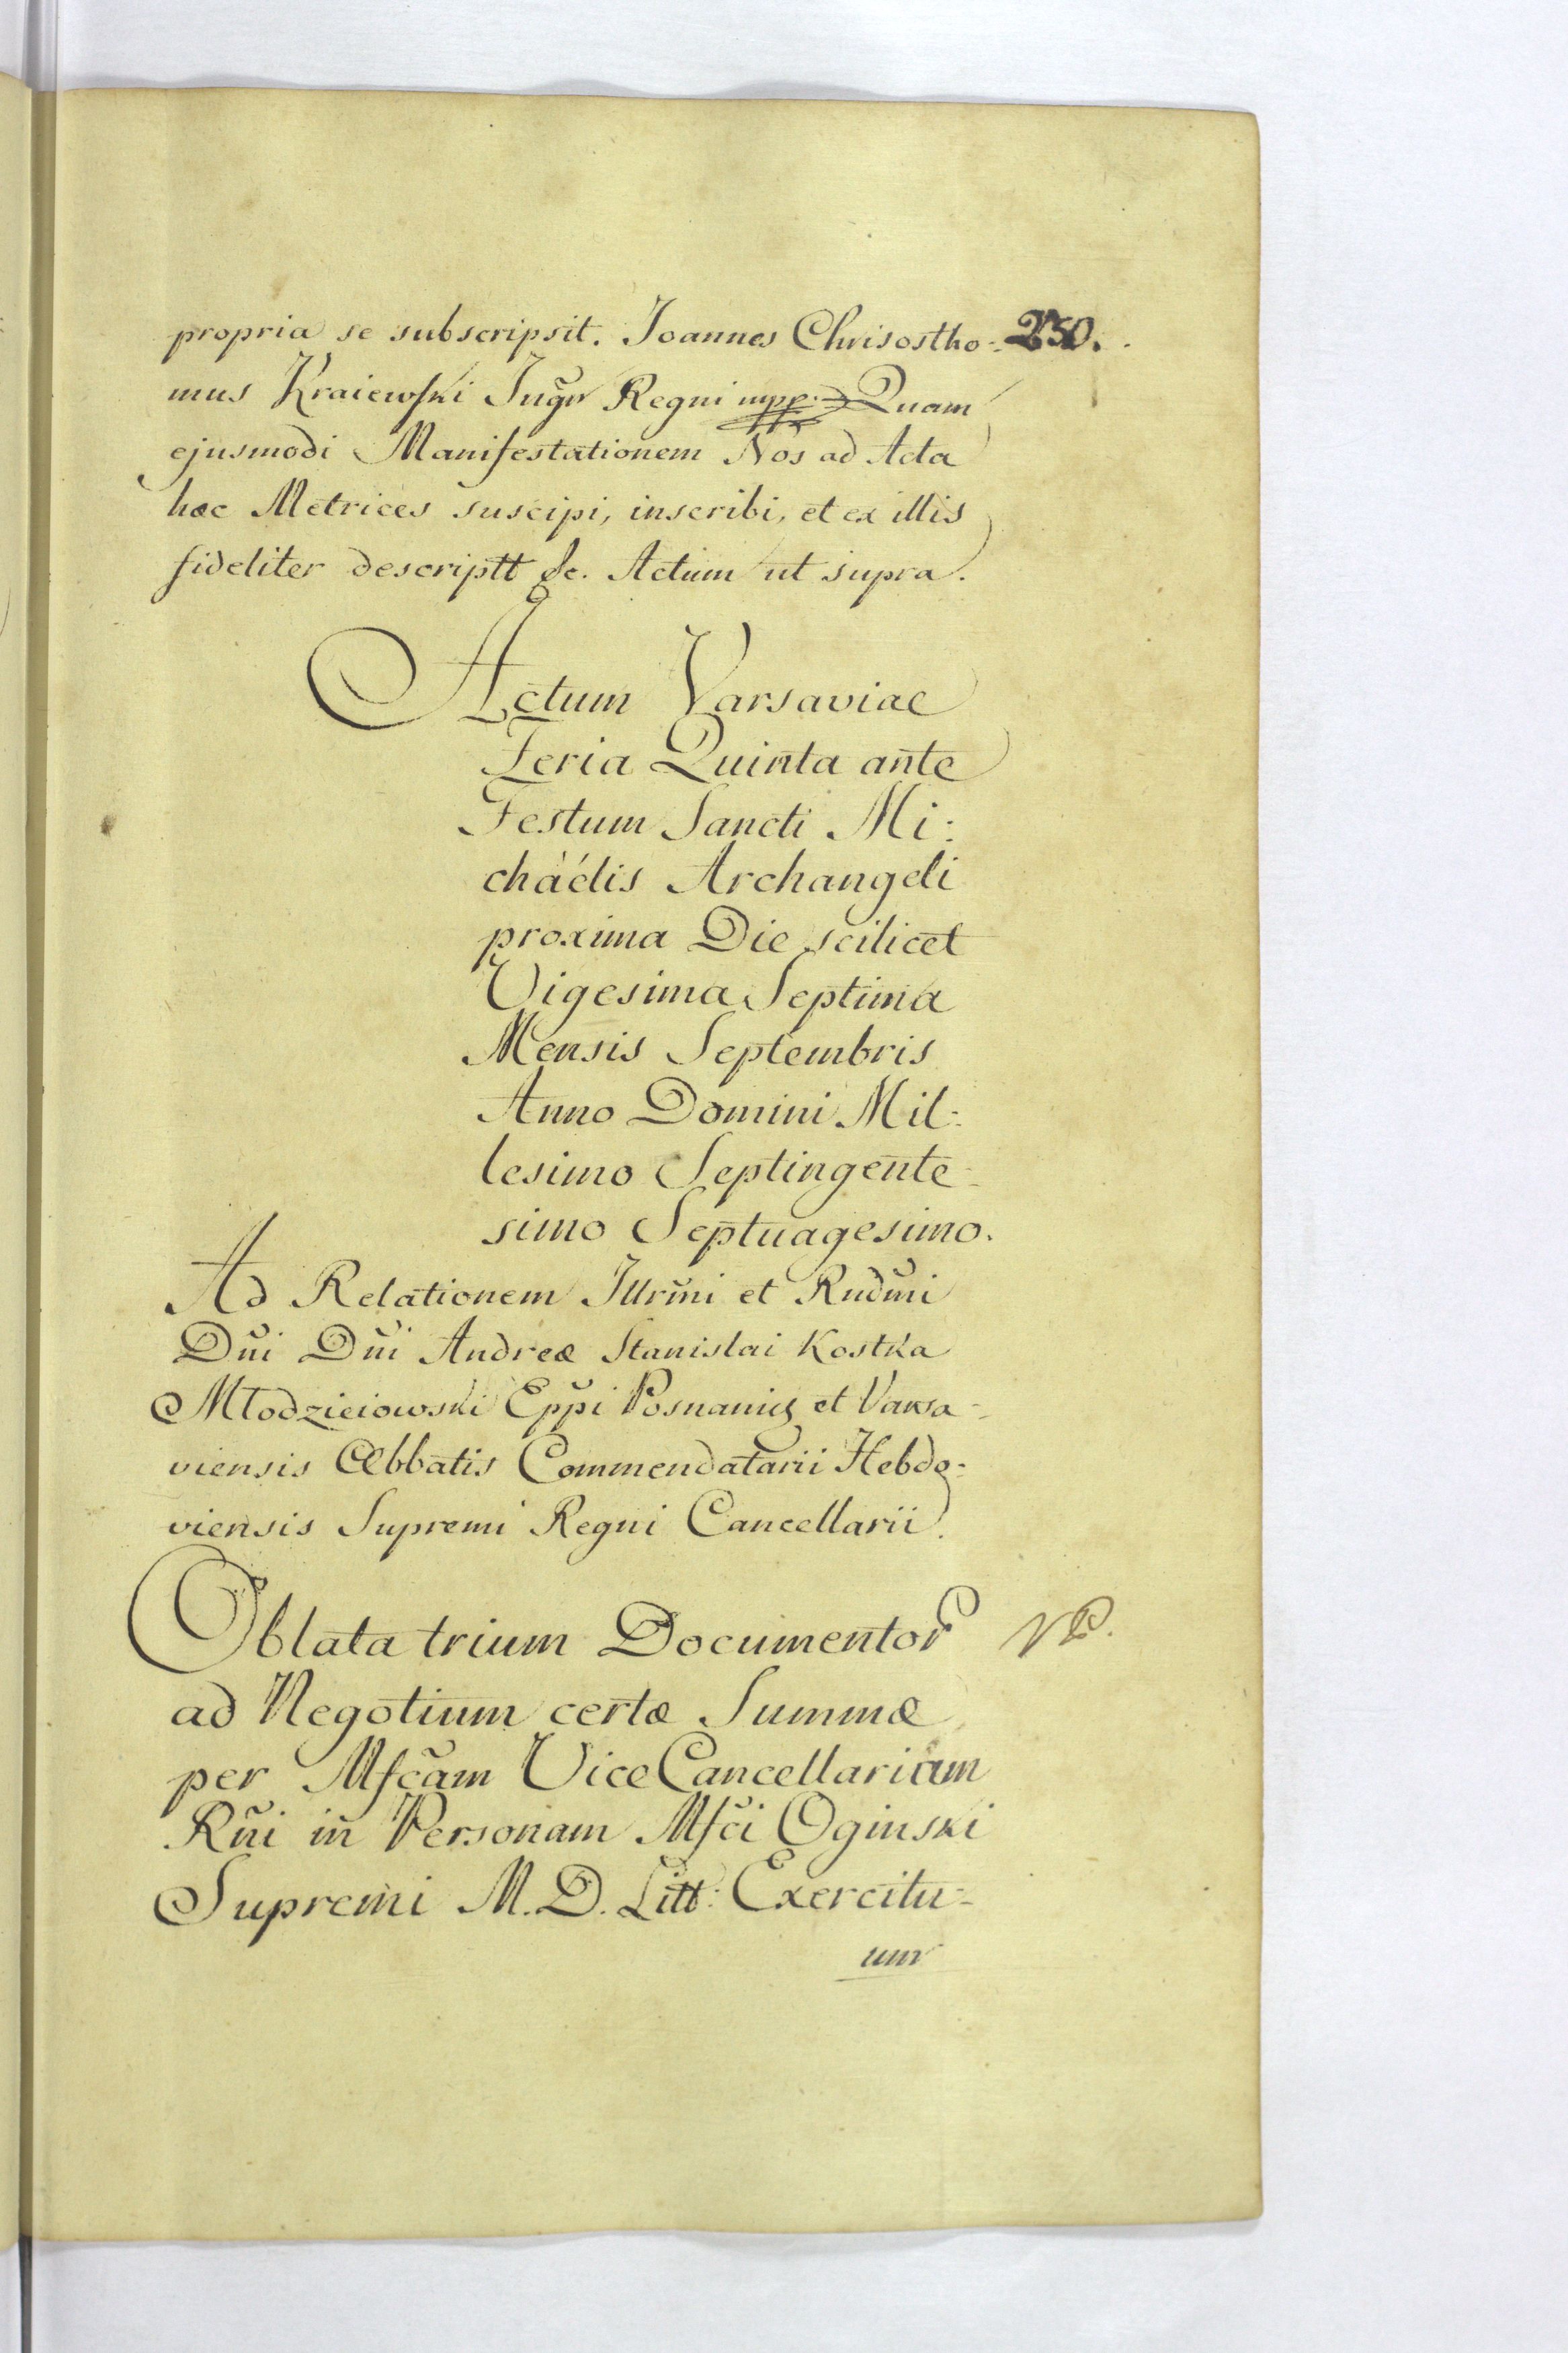 propria se subscripsit. Joannes Chrisostho:
250.
mus Kraiewski Jugr Regni mpp. Quam
ejusmodi Manifestationem Nos ad Acta
hæc Metrices suscipi, inscribi, et ex illis
fideliter descriptt &c. Actum ut supra.
Actum Varsaviae
Feria Quinta ante
Festum Sancti Mi:
chàélis Archangeli
proxima Die scilicet
Vigesima Septima
Mensis Septembris
Anno Domini Mil:
lesimo Septingente-
simo Septuagesimo.
Ad Relationem Illrmi et Rndmi
Dni Dni Andreæ Stanislai Kostka
Młodzieiowski Eppi Posnanien et Varsa-
viensis Abbatis Commendatarii Hebdo:
viensis Supremi Regni Cancellarii.
Oblata trium Documentor
ad Negotium certæ Summæ
per Mfcam Vice Cancellariam
Rni in Personam Mfci Oginski
Supremi M. D. Litt: Exercitu-
um